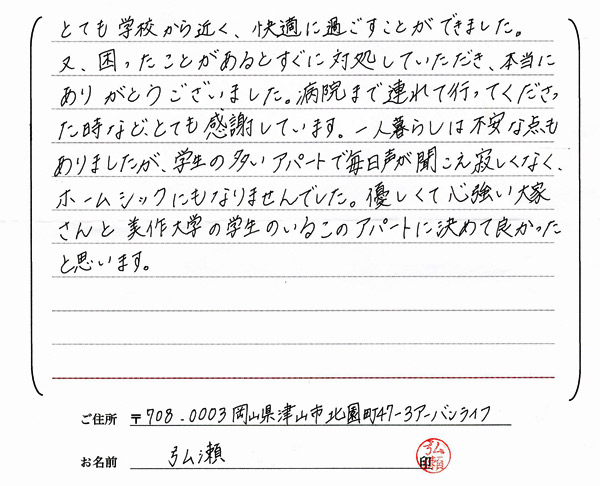 とても学校から近く、快適に過ごすことができました。
又、困ったことがあるとすぐに対処していただき、本当に
ありがとうございました。病院まで連れて行ってくださっ
た時など、とても感謝しています。一人暮らしは不安な点も
ありましたが、学生の多いアパートで毎日声が聞こえ寂しくなく、
ホームシックにもなりませんでした。優しくて心強い大家
さんと美作大学の学生のいるこのアパートに決めて良かった
と思います。
ご住所 〒708-0003岡山県津山市北園町47-3アーバンライフ
お名前 弘瀬 印 弘瀬